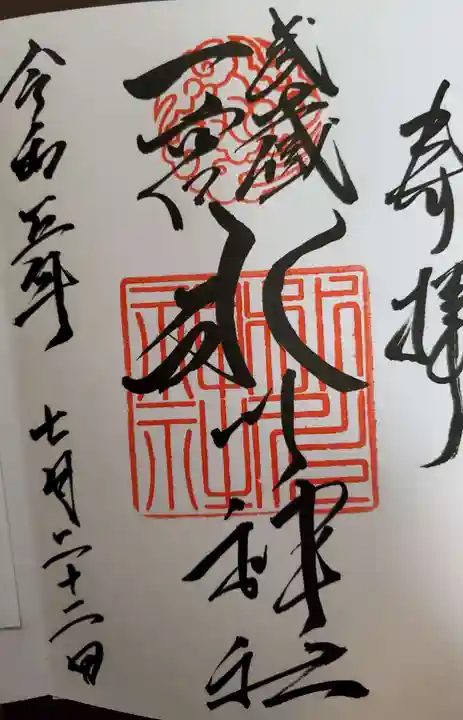 奉拝
武蔵
一宮
氷川神社
氷川
神社
令和五年 七月二十二日